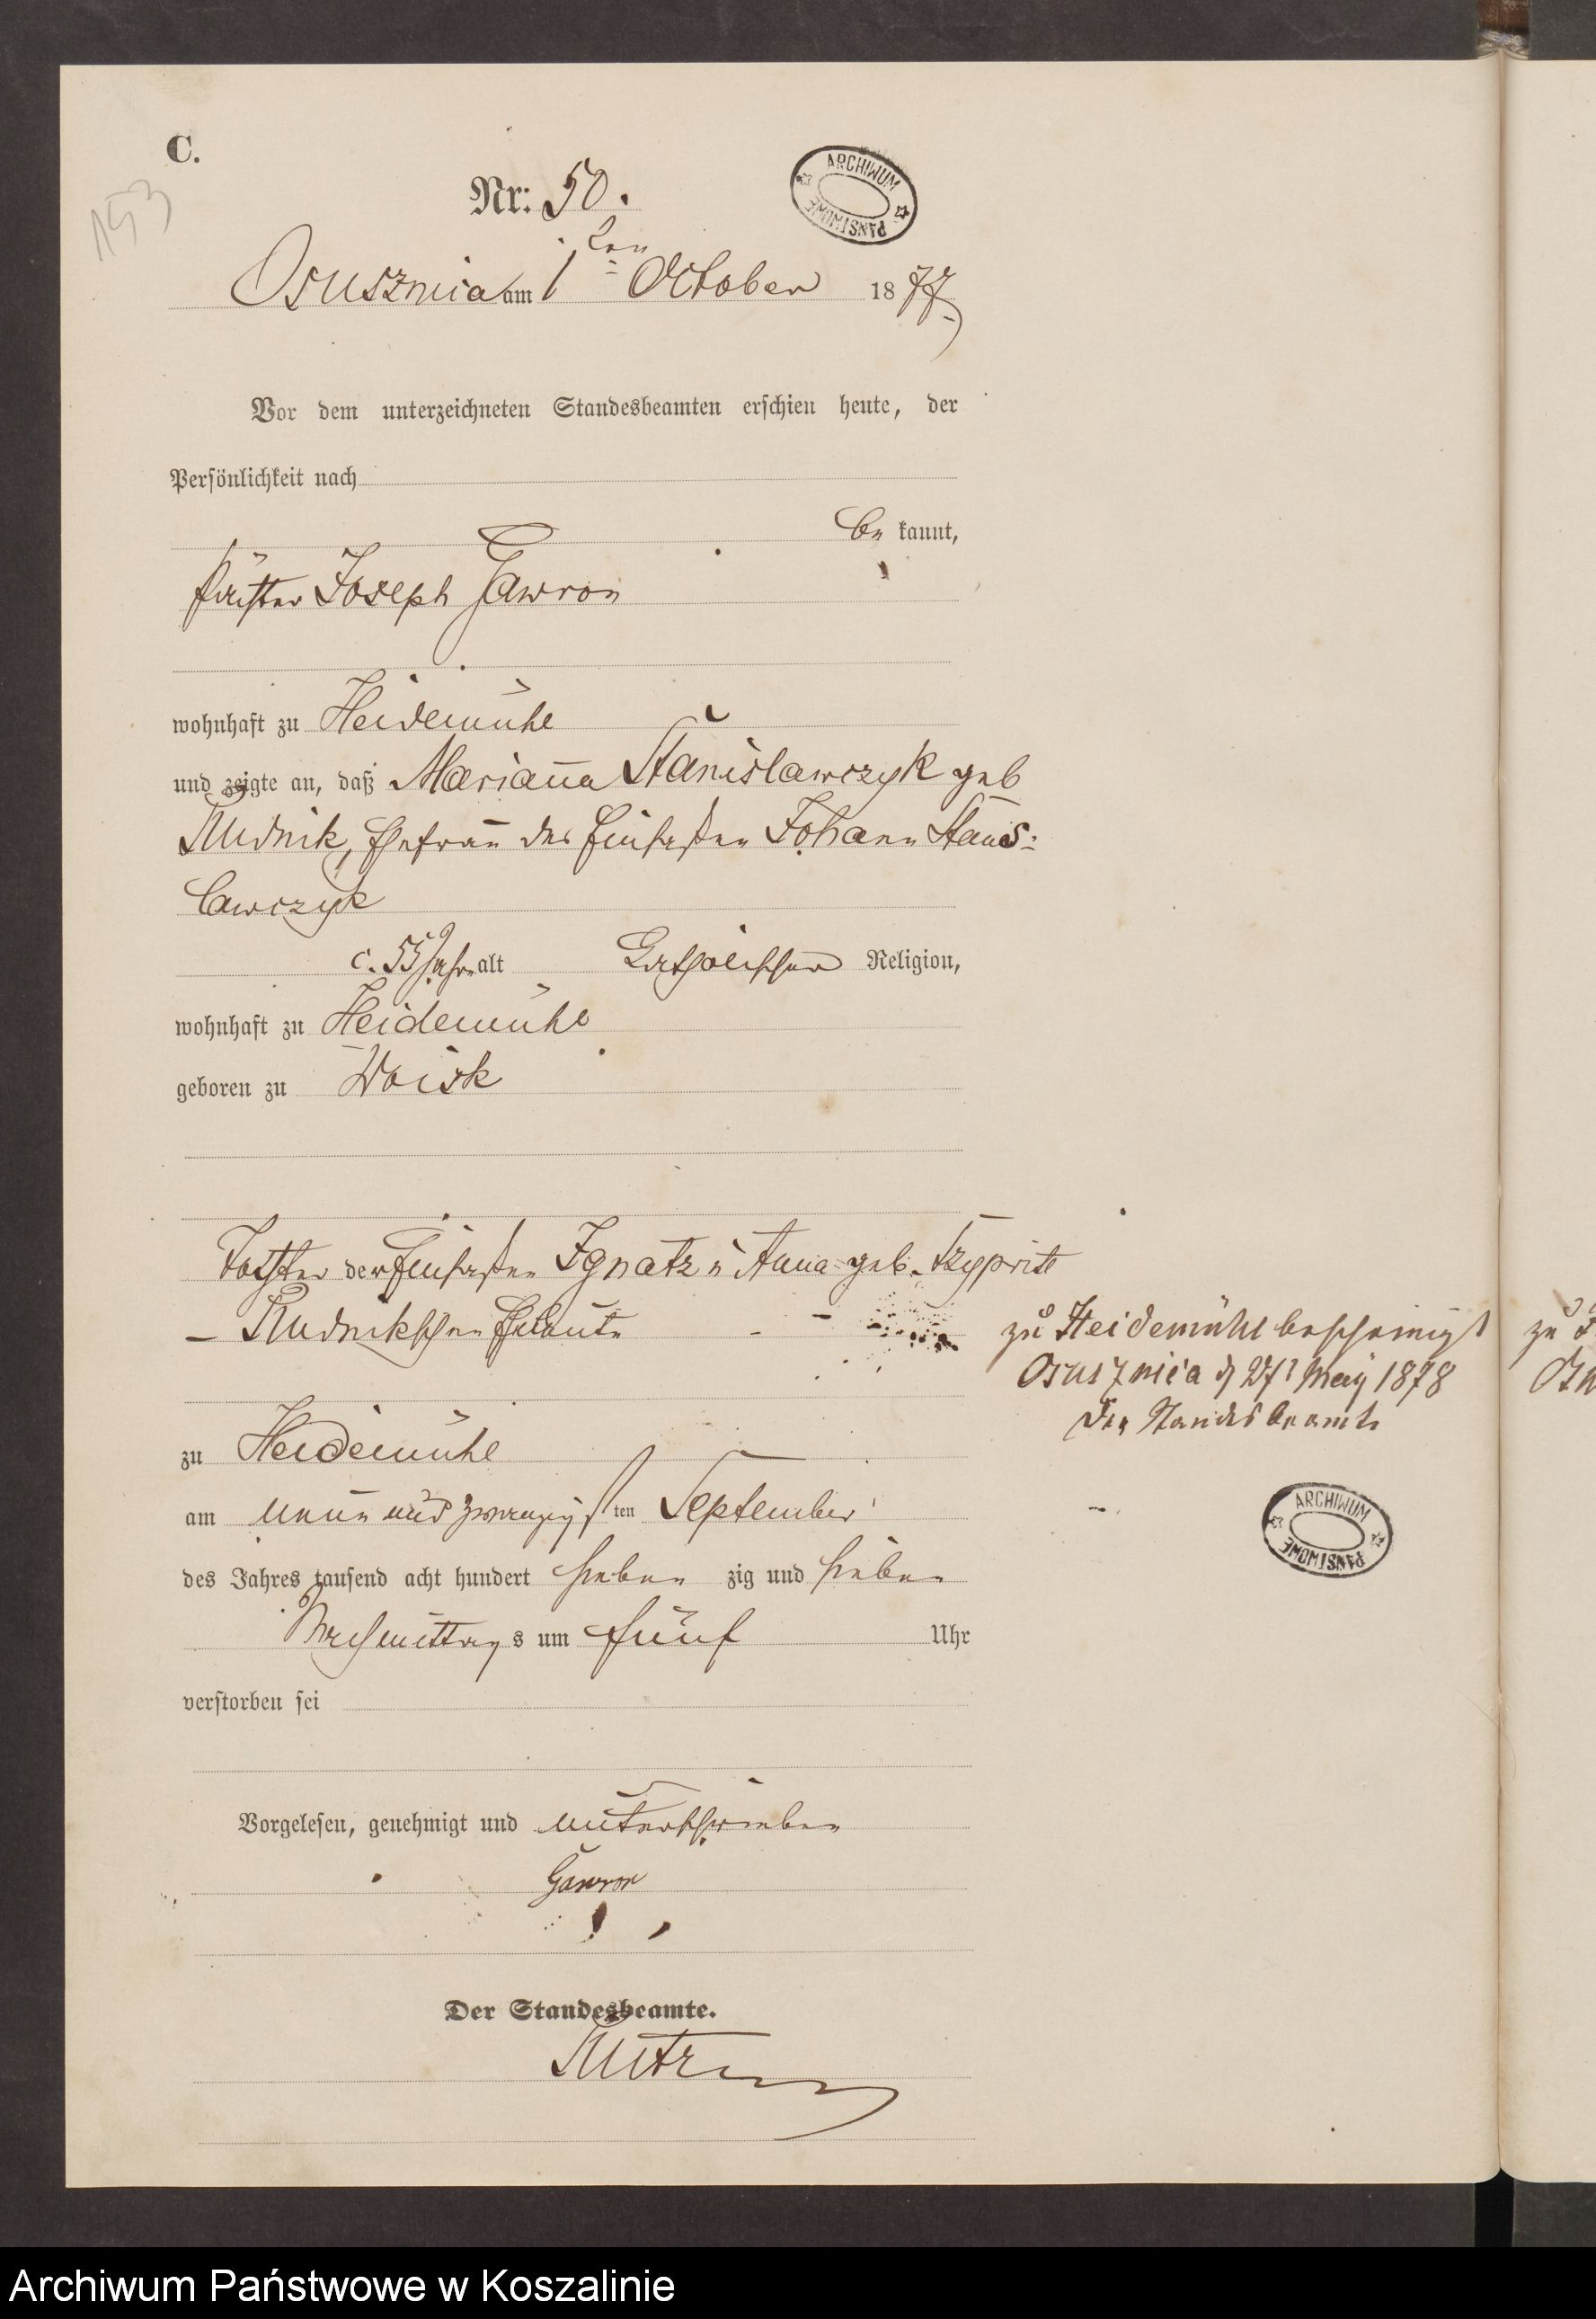 C.
153
Nr: 50.
ARCHIWUM PAŃSTWOWE
Osusznica am 1ten October 1877
Vor dem unterzeichneten Standesbeamten erschien heute, der
Persönlichkeit nach
be kannt,
Förster Joseph Gawron
wohnhaft zu Heidemühl
und zeigte an, daß Marianna Stanislawczyk geb
Rudnik, Ehefrau des Einsaßen Johann Stanis:
lawczyk
c. 55 Jahr alt katholischer Religion,
wohnhaft zu Heidemühl
geboren zu Woisk
Tochter der Einsaßen Ignatz u Anna geb.
– Rudnikschen Eheleute
zu Heidemühl bescheinigt
Osusznica d 27t May 1878
Der Standesbeamte
zu Heidemühl
am neun und zwanzigsten September
des Jahres tausend acht hundert sieben zig und sieben
Nachmittags um fünf Uhr
verstorben sei
ARCHIWUM PAŃSTWOWE
Vorgelesen, genehmigt und unterschrieben
Gawron
Der Standesbeamte.
Archiwum Państwowe w Koszalinie